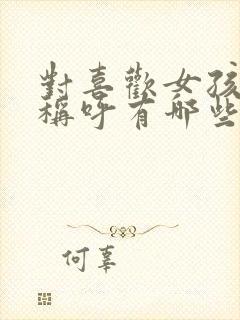 對喜歡女孩
稱呼有哪些
何辜